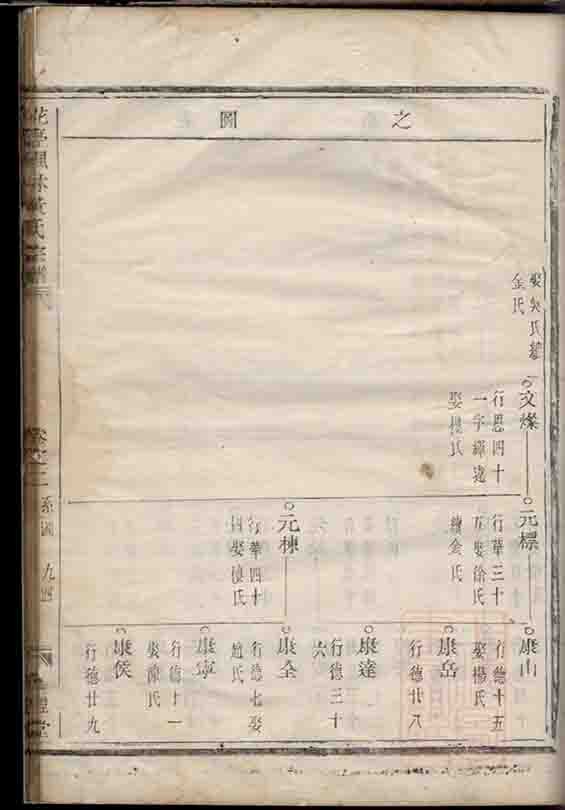 之圖
娶吳氏繼
金氏
文燦
行恩四十
一字
娶楊氏
元標
行華三十
五娶徐氏
繼金氏
元棟
行華四十
四娶
康山
行德十五
娶楊氏
康岳
行德廿八
康達
行德三十
六
康全
行德七娶
趙氏
康寧
行德十一
娶陳氏
康侯
行德廿九
氏宗譜
卷之三
系圖
九四
堂